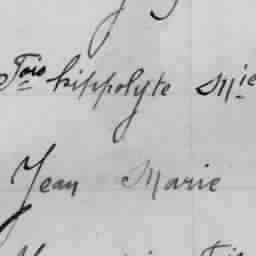 Fois hippolyte Mie
Jean Marie